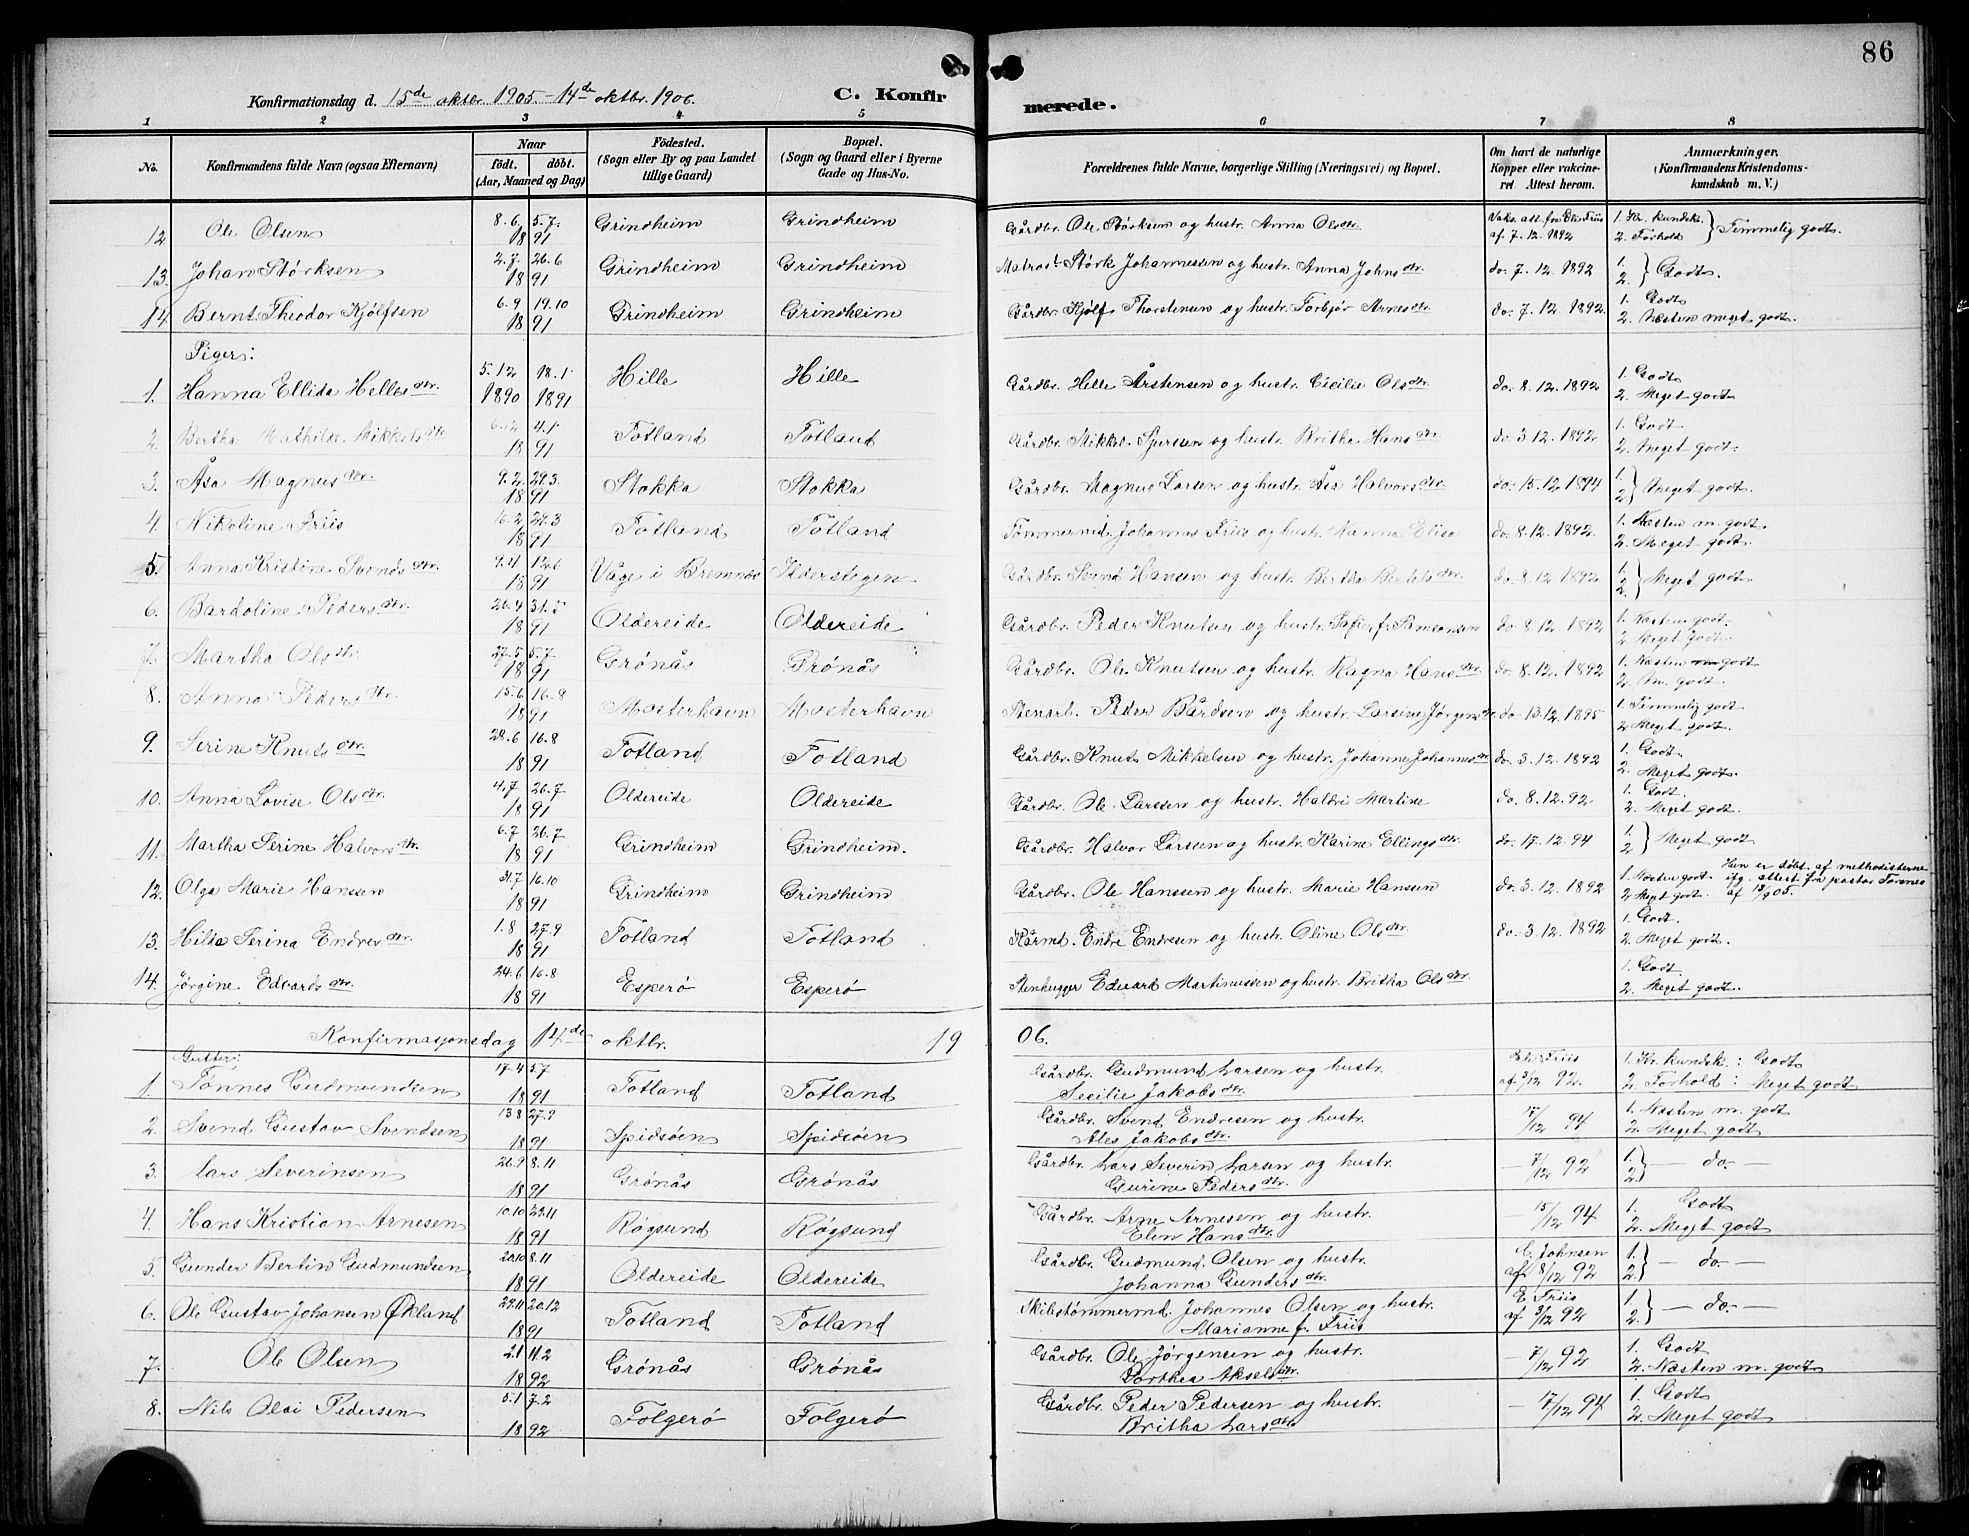 86
Konfirmationsdag d. 15de oktbr. 1905 - 14de oktbr. 1906. C. Konfirmerede.
1 2 3 4 5 6 7 8
No. Konfirmandens fulde Navn (ogsaa Efternavn) Naar födt. döbt. (Aar, Maaned og Dag) Födested. (Sogn eller By og paa Landet tillige Gaard) Bopæl. (Sogn og Gaard eller i Byerne Gade og Hus-No. Forældrenes fulde Navne, borgerlige Stilling (Næringsvei) og Bopæl. Om havt de naturlige Kopper eller vakcineret Attest herom. Anmærkninger. (Konfirmandens Kristendomskundskab m. V.)
12. Ole Olsen 8.6 5.7. 1891 Grindheim Grindheim Gårdbr. Ole Størksen og hustr. Anna Olsdtr. Vaks. att. fra Elis Friis af 7.12.1892 1. Kr. kundsk. 2. Forhold } Temmelig godt.
13. Johan Størksen 2.7. 26.6 1891 Grindheim Grindheim Matros Størk Johannessen og hustr. Anna Johnsdtr. do. 7.12.1892 1. 2. } Godt.
14. Bernt Theodor Kjølfsen 6.9 19.10 1891 Grindheim Grindheim Gårdbr. Kjølf Thorstensen og hustr. Torbjør Arnesdtr. do. 7.12.1892 1. Godt 2. Næsten meget godt.
Piger:
1. Hanna Ellida Hellesdtr. 5.12 1890 18.1 1891 Hille Hille Gårdbr. Helle Årstensen og hustr. Cicilie Olsdtr. do. 8.12.1892 1. Godt 2. Meget godt
2. Bertha Mathilde Mikkelsdtr. 6.12 4.1. 1891 Totland Totland Gårdbr. Mikkel Sjursen og hustr. Britha Hansdtr. do. 3.12.1892 1. Godt 2. Meget godt.
3. Åsa Magnusdtr. 9.2. 29.3 1891 Stokka Stokka Gårdbr. Magnus Larsen og hustr. Åsa Halvorsdtr. do. 15.12.1894 1. 2. } Meget godt.
4. Nikoline Friis 16.2 29.3 1891 Totland Totland Tømmermd. Johannes Friis og hustr. Hanna Elisa do. 8.12.1892. 1. Næsten m. godt. 2. Meget godt.
5. Anna Kristine Svendsdtr. 9.4 12.6 1891 Våge i Bremnes Gårdbr. Svend Hansen og hustr. Bertha Bertelsdtr. do. 8.12.1892 1. 2. } Meget godt
6. Bardoline Pedersdtr. 26.4 31.5 1891 Oldereide Oldereide Gårdbr. Peder Knutsen og hustr. Sofie f. Samsonsen do. 8.12.1892 1. Næsten godt. 2. Meget godt.
7. Martha Olsdtr. 27.5 5.7. 1891 Grönås Grönås Gårdbr. Ole Knutsen og hustr. Ragna Hansdtr. do. 8.12.1892 1. Næsten godt 2. m. godt.
8. Anna Pedersdtr. 15.6 16.8 1891 Mosterhavn Mosterhavn Stenarb. Peder Bårdsen og hustr. Larsine Jørgensdtr. do. 13.12.1895 1. Temmelig godt 2. Meget godt.
9. Serine Knutsdtr. 28.6 16.8 1891 Totland Totland Gårdbr. Knut Mikkelsen og hustr. Johanne Johannesdtr. do. 3.12.1892 1. Godt. 2. Meget godt.
10. Anna Lovise Olsdtr. 4.7 26.7 1891 Oldereide Oldereide Gårdbr. Ole Larssen og hustr. Haldri Martine do. 8.12.92 1. Godt. 2. Meget godt
11. Martha Serine Halvorsdtr. 6.7 26.7 1891 Grindheim Grindheim. Gårdbr. Halvor Larssen og hustr. Karine Ellingsdtr. do. 17.12.94 1. 2. } Meget godt
12. Olga Marie Hanssen 31.7 16.10 1891 Grindheim Grindheim Gårdbr. Ole Hanssen og hustr. Marie Hansen do. 3.12.1892 1. Næsten godt 2. Meget godt. Hun er døbt af methodisterne ifg. attest fra pastor Torenes af 1905.
13. Hilda Serina Endresdtr. 1.8 27.9 1891 Totland Totland Endre Endresen og hustr. Oline Olsdtr. do. 3.12.1892 1. Godt. 2. Meget godt.
14. Jørgine Edvardsdtr. 24.6 16.8 1891 Esperö Esperö Stenhugger Edvard Martinussen og hustr. Britha Olsdtr. 1. Godt 2. Meget godt.
Konfirmasjonsdag 14de oktbr. 1906.
Gutter:
1. Tønnes Gudmundsen 17.4 5.7 1891 Totland Totland Gårdbr. Gudmund Larsen og hustr. Secilie Jakobsdtr. El. Friis af 3/12 92. 1. Kr. kundsk.: Godt 2. Forhold: Meget godt
2. Svend Gustav Svendsen 13.8 27.9 1891 Spidsöen Spidsöen Gårdbr. Svend Endresen og hustr. Ales Jakobsdtr. 17/12 94 1. Næsten m. godt 2. Meget godt
3. Lars Severinsen 26.9 8.11 1891 Grönås Grönås Gårdbr. Lars Severin Larsen og hustr. Gurine Pedersdtr. - 7/12 92 1. 2. } - do. -
4. Hans Kristian Arnesen 10.10 22.11 1891 Røgsund Røgsund Gårdbr. Arne Arnesen og hustr. Elen Hansdtr. - 15/12 94 1. Godt 2. Meget godt
5. Gunder Bertin Gudmundsen 20.10 8.11 1891 Oldereide Oldereide Gårdbr. Gudmund Olsen og hustr. Johanna Gundersdtr. C. Johnsen af 8/12 92 1. 2. } - do. -
6. Ole Gustav Johansen Økland 29.11 20.12 1891 Totland Totland Skibstømmermd. Johannes Olsen og hustr. Marianne f. Friis E. Friis af 3/12 92 1. 2. } - do. -
7. Ole Olsen 2.1 11.2 1892 Grönås Grönås Gårdbr. Ole Jørgensen og hustr. Dorthea Akselsdtr. - 7/12 92 1. Godt 2. Næsten m. godt
8. Nils Olai Pedersen 5.1 7.2 1892 Folgerö Folgerö Gårdbr. Peder Pedersen og hustr. Britha Larsdtr. - 17/12 94 1. Godt 2. Meget godt